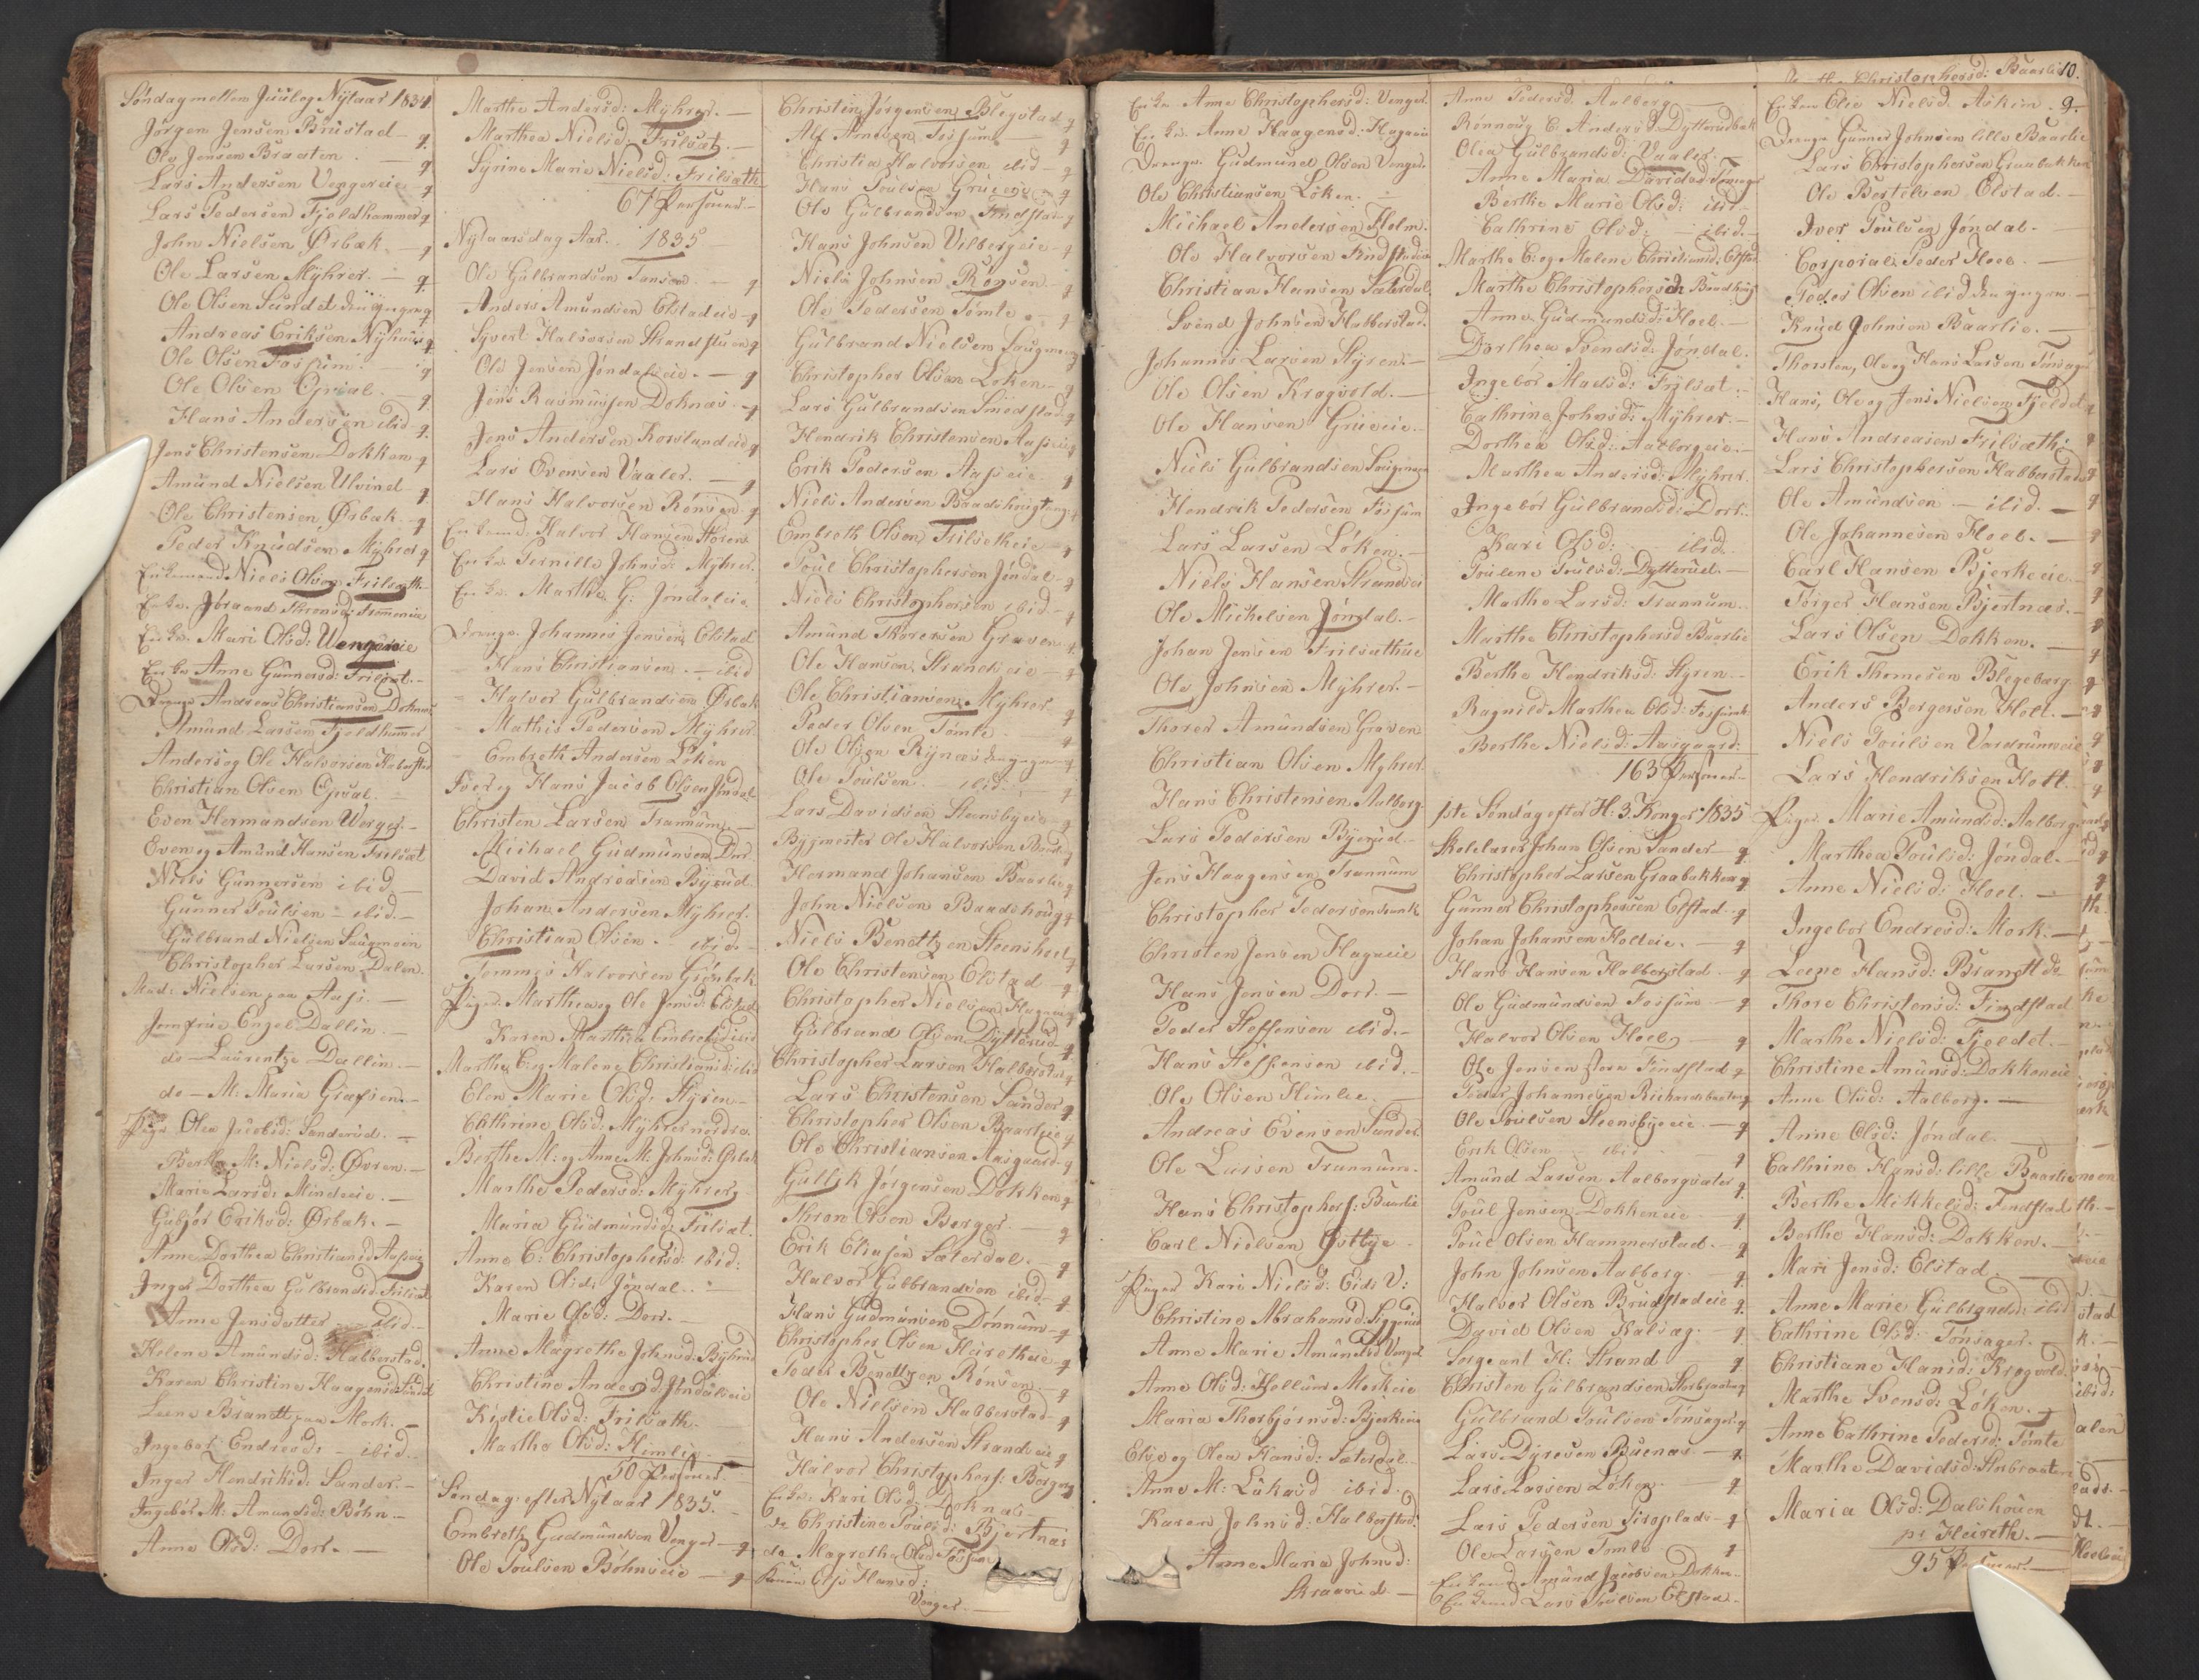 Søndag mellem Juul og Nytaar 1834.
Jørgen Jensen Brustad - g
Ole Jensen Braaten - g
Lars Andersen Vengereie g
Lars Pedersen Fjeldhammer g
John Nielsen Ørbæk - g
Ole Larsen Mÿhrer. - g
Ole Olsen Sundet den yngre g
Andreas Eriksen Nÿhuus g
Ole Olsen Fossum - g
Ole Olsen Opsal. - g
Hans Andersen ibid g
Jens Christensen Dokken g
Amund Nielsen Ulvind g
Ole Christensen Ørbæk g
Peder Knudsen Mÿhrer g
Enkemand Niels Olsen Frilsæth
Enke Jøraand
Enke. Mari Olsd: Wengereie
Enke Anne Gunnersd: Frilsæt. -
Drenge Andreas Christiansen Doknæs
Amund Larsen Fjeldhammer
Anders og Ole Halvorsen Haberstad
Christian Olsen Opsal. -
Even Hermandsen Werger. -
Even og Amund Hansen Frilsæt
Niels Gunnersen ibid -
Gunner Poulsen - ibid. -
Gulbrand Nielsen Saugmoen
Christopher Larsen Dalen.
Mad: Nielsen paa Aass. -
Jomfrue Engel Dallin -
do - Laurentze Dallin. -
do - M: Maria
Piger Olea Jacobsd: Sanderud. -
Berthe M: Nielsd: Øvren. -
Marie Larsd: Mindeeie. -
Gubjør Eriksd: Ørbæk. -
Anne Dorthea Christiansd Aasseie
Inger Dorthea Gulbrandsd: Frilsæt
Anne Jensdatter - ibid. -
Helene Amundsd: Halberstad.
Karen Christine Haagensd
Leene Brandtt paa Mork. -
Ingebor Endresd: - ibid.
Inger Hendriksd: Sander. -
Ingebor M: Amundsd: Bøhn -
Anne Olsd: Dorr. -
Marthe Andersd: Mÿhrer. -
Marthea Nielsd: Frilsæt. -
Syrine Marie Nielsd: Frilsæth
67 Personer -
Nytaarsdag Aar. 1835 -
Ole Gulbrandsen - g
Anders Amundsen Elstadeie g
Sÿvert Halvorsen Strandstuen g
Ole Jensen Jøndaleie. - g
Jens Rasmussen Doknæs. - g
Jens Andersen g
Lars Evensen Vaaler. - g
Hans Halvorsen Rønsen g
Enkemd. Halvor Hansen
Enke Pernille Johnsd: Mÿhrer.
Enke. Marthe G: Jøndaleie.
Drenge. Johannes Jensen Elstad
- Hans Christiansen. - ibid
- Halvor Gulbrandsen Ørbæk
Mathis Pedersen Mÿhrer
Embreth Andersen Løken
Iver og Hans Jacob Olsen Jøndal
Christen Larsen Trannum -
Michael Gudmundsen Dorr.
David Andreasen Bÿrud.
Johan Andersen Mÿhrer.
Christian Olsen. ibid. -
Tommes Halvorsen
Piger. Marthea og Ole Jensd: Elstad
Karen Marthea Embretsd ibid
Marthe E: og Malene Christiansd: ibid
Elen Marie Olsd: Stÿren -
Cathrine Olsd: Mÿhrer nordre.
Berthe M: og Anne M: Johnsd: Ørbæk
Marthe Pedersd: Mÿhrer
Maria Gudmundsd: Frilsæt.
Anne C: Christophersd: ibid:
Karen Olsd: Jøndal. -
Marie Olsd: Dorr. -
Anne Magrethe Johnsd: Bÿhrud
Christine Andersd: Jøndaleie
Kirstie Olsd: Frilsæth. -
Marthe Olsd: Himlie -
50 Personer. -
Søndag efter Nytaar 1835.
Embreth Gudmundsen Venger - g
Ole Poulsen Bøhnseie - g
Christen Jørgensen Blegstad g
Alf Arnesen Fossum g
Christian Halvorsen ibid - g
Hans Poulsen Grueeie g
Ole Gulbrandsen Findstad g
Hans Johnsen Vilbergeie - g
Niels Johnsen Rønsen g
Ole Pedersen Tomte - g
Gulbrand Nielsen Saugmoen g
Christopher Olsen Løken - g
Lars Gulbrandsen Smedstad g
Hendrik Christensen Aasseie g
Erik Pedersen Aasseie g
Niels Andersen Baadshougteng. g
Embreth Olsen Frilsetheie - g
Poul Christophersen Jøndal - g
Niels Christophersen ibid - g
Amund Thoresen Graven - g
Ole Hansen Strandeie - g
Ole Christiansen Mÿhrer. g
Peder Olsen Tomte g
Ole Olsen Rynæs den yngre g
Ole Poulsen - ibid. g
Lars Davidsen Steensbyeie g
Bygmester Ole Halvorsen g
Hermand Johansen Baarlie g
John Nielsen Baadshoug g
Niels Benettzen Steenshoel g
Ole Christensen Elstad - g
Christopher Nielsen Hageneie g
Gulbrand Olsen Dÿtterud g
Christopher Larsen Halberstad g
Lars Christensen Sander g
Christopher Olsen Baarlieie g
Ole Christiansen Aasgaard g
Gullik Jørgensen Dokken g
Thron Olsen Berger. - g
Erik Eliasen Sæterdal. - g
Halvor Gulbrandsen ibid - g
Hans Gudmunsen Dønnum - g
Christopher Olsen Heiretheie - g
Peder Benettzen Rønsen - g
Ole Nielsen Habberstad - g
Hans Andersen Strandeie g
Halvor Christophers: Borgen g
Enke: Kari Olsd: Doknæs -
do Christine Poulsd: Bjertnæs
do Magrethe Olsd Fossum
Konen Elise Hansd:
Venger. -
Enke. Anne Christophersd: Venger.
Enke. Anne Haagensd: Hageneie
Drenge. Gudmund Olsen Venger.
Ole Christiansen Løken. -
Michael Andersen Holm.
Ole Halvorsen Findstadeie
Christian Hansen Sæterdal.
Svend Johnsen Halberstad.
Johannes Larsen Styren. -
Ole Olsen Krogvold. -
Ole Hansen Grueeie. -
Niels Gulbrandsen Saugmoen
Hendrik Pedersen Fossum
Lars Larsen Løken. -
Niels Hansen Strandeie
Ole Michelsen Jøndal. -
Johan Jensen Frilsætheie
Ole Johnsen Mÿhrer. -
Thorer Amundsen Graven
Christian Olsen Mÿhrer.
Hans Christensen Aalborg.
Lars Pedersen Byerud. -
Jens Haagensen Trannum
Christopher Pedersen
Christen Jensen Hageeie
Hans Jensen Dorr. -
Peder Steffensen ibid. -
Hans Steffensen ibid. -
Ole Olsen Himlie. -
Andreas Evensen Sander.
Ole Larsen Trannum.
Hans Christophers: Baarlie
Carl Nielsen Østbye -
Piger Kari Nielsd: Eids V:
Christine Abrahamsd:
Anne Marie Amundsd Venger
Anne Olsd: Hellum Morkeie
Maria Thorbjørnsd: Bjerkeeie
Elise og Olea Hansd: Sæterdal -
Anne M: Lukasd ibid. -
Karen Johnsd: Halberstad:
Anne Maria Johnsd:
Skraarud -
Anne Pedersd. Aalborg -
Rønnoug C. Andersd: Dytterudbak
Olea Gulbrandsd: Vaaler. -
Anne Maria Davidsd
Berthe Marie Olsd: ibid -
Cathrine Olsd: - ibid. -
Marthe E: og Malene Christiansd: Elstad
Marthe Christophersdr Baadshoug
Anne Gudmundsd: Hoel. -
Dorthea Svendsd: Jøndal.
Ingebor Madsd: Frilsæt. -
Cathrine Johnsd: Mÿhrer. -
Dorthea Olsd: Aalborgeie. -
Marthea Andersd: Mÿhrer.
Ingebor Gulbrandsd: Dorr.
Kari Olsd: - ibid.
Poulene Poulsd: Dytterud. -
Marthe Larsd: Trannum. -
Marthe Christophersd Baarlie
Berthe Hendriksd: Styren. -
Ragnild Marthea Olsd: Fossum
Berthe Nielsd: Aasgaard:
163 Personer -
1ste Søndag efter H: 3. Konger 1835
Skolelærer Johan Olsen Sander g
Christopher Larsen Graabakken g
Gunner Christophersen Elstad. g
Johan Johansen Holleie. - g
Hans Hansen Halberstad - g
Ole Gudmundsen Fossum - g
Halvor Olsen Hoel - g
Ole Jensen Findstad g
Peder Johannesen Richardsbraaten g
Ole Poulsen Steensbÿeeie. - g
Erik Olsen - ibid - g
Amund Larsen Aalborgsæter g
Poul Jensen Dokkeneie g
Poul Olsen Hammerstad. - g
John Johnsen Aalborg. - g
Halvor Olsen Brudstadeie g
David Olsen Kalsag. - g
Sergeant H: Strand g
Christen Gulbrandsen g
Gulbrand Poulsen Tønsager g
Lars Dyresen Buenæs. - g
Lars Larsen Løken. - g
Lars Pedersen - g
Ole Larsen Tomte g
Enkemd Amund Jacobsen Dokken -
Enkemd Lars Poulsen Elstad. -
Christophersd: Baarlie 10.
Enken Elie Nielsd. Askim. 9.
Drenge Gunner Johnsen lille Baarlie
Lars Christophersen Graabakken
Ole Bertelsen Elstad. -
Iver Poulsen Jøndal. -
Corporal Peder Hoel. -
Peder Olsen ibid den yngre. -
Knud Johnsen Baarlie. -
Thorsten, Ole og Hans Larsen Tønsager
Hans, Ole og Jens Nielsen Fjeldet
Hans Andreasen Frilsæth:
Lars Christophersen Halberstad
Ole Amundsen - ibid. -
Ole Johannesen Hoel. -
Carl Hansen Bjerkeeie. -
Torger Hansen Bjertnæs. -
Lars Olsen Dokken. -
Erik Thomesen Blegeberg
Anders Bergersen Holt. -
Niels Poulsen
Lars Hendriksen Holt. -
Piger Marie Amundsd: Aalborg
Marthea Poulsd: Jøndal. -
Anne Nielsd: Hoel. -
Ingebor Endresd: Mork. -
Leene Hansd: Brandtt do
Thore Christensd: Findstad
Marthe Nielsd: Fjeldet. -
Christine Amundsd: Dokkeneie
Anne Olsd: Aalborg. -
Anne Olsd: Jøndal. -
Cathrine Hansd: lille Baarlie
Berthe Mikkelsd: Findstad
Berthe Hansd: Dokken. -
Mari Jensd: Elstad -
Anne Marie Gulbrandsd: ibid
Cathrine Olsd: Tønsager. -
Christiane Hansd: Krogvold.
Marthe Svensd: Løken. -
Anne Cathrine Pedersd: Tomte
Marthe Davidsd:
Maria Olsd: Dalshouen
pr Heireth. -
95 Personer. -